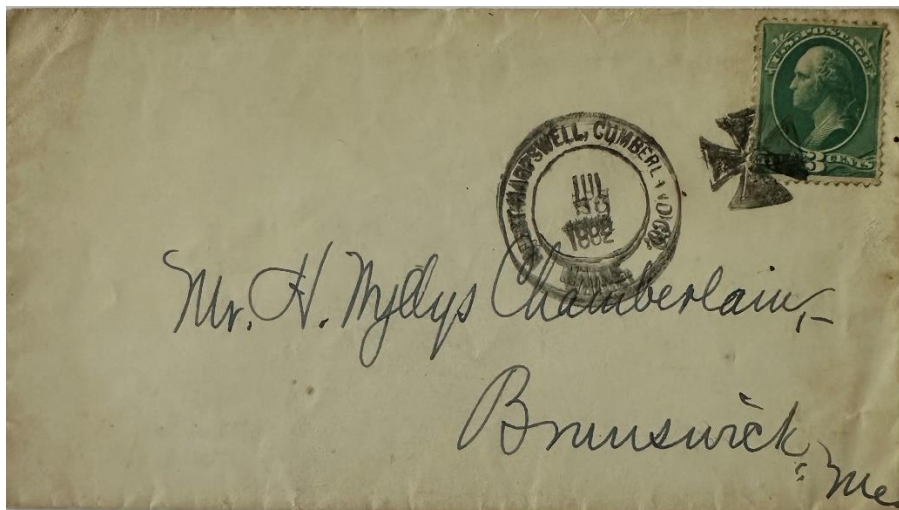 U.S. POSTAGE
3 CENTS
HARPSWELL, CUMBERLAND CO
JUL
1882
MAINE
Mr. H. Wyllys Chamberlain,
Brunswick,
Me.